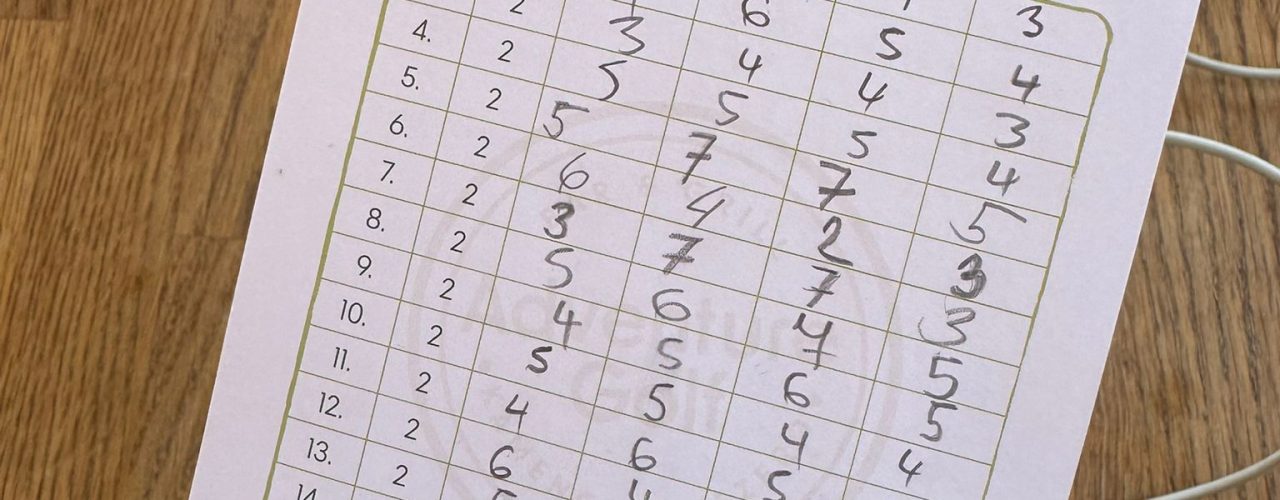 3
6 5 4
2 3 4 4 3
4. 2 5 5 5 4
5. 2 5 7 7 5
6. 2 6 4 2 3
7. 2 3 7 7 3
8. 2 5 6 4 5
9. 2 4 5 6 5
10. 2 5 5 4 4
11. 2 4 6 5
12. 2 6 4
13. 2
14.
Adventure
Golf